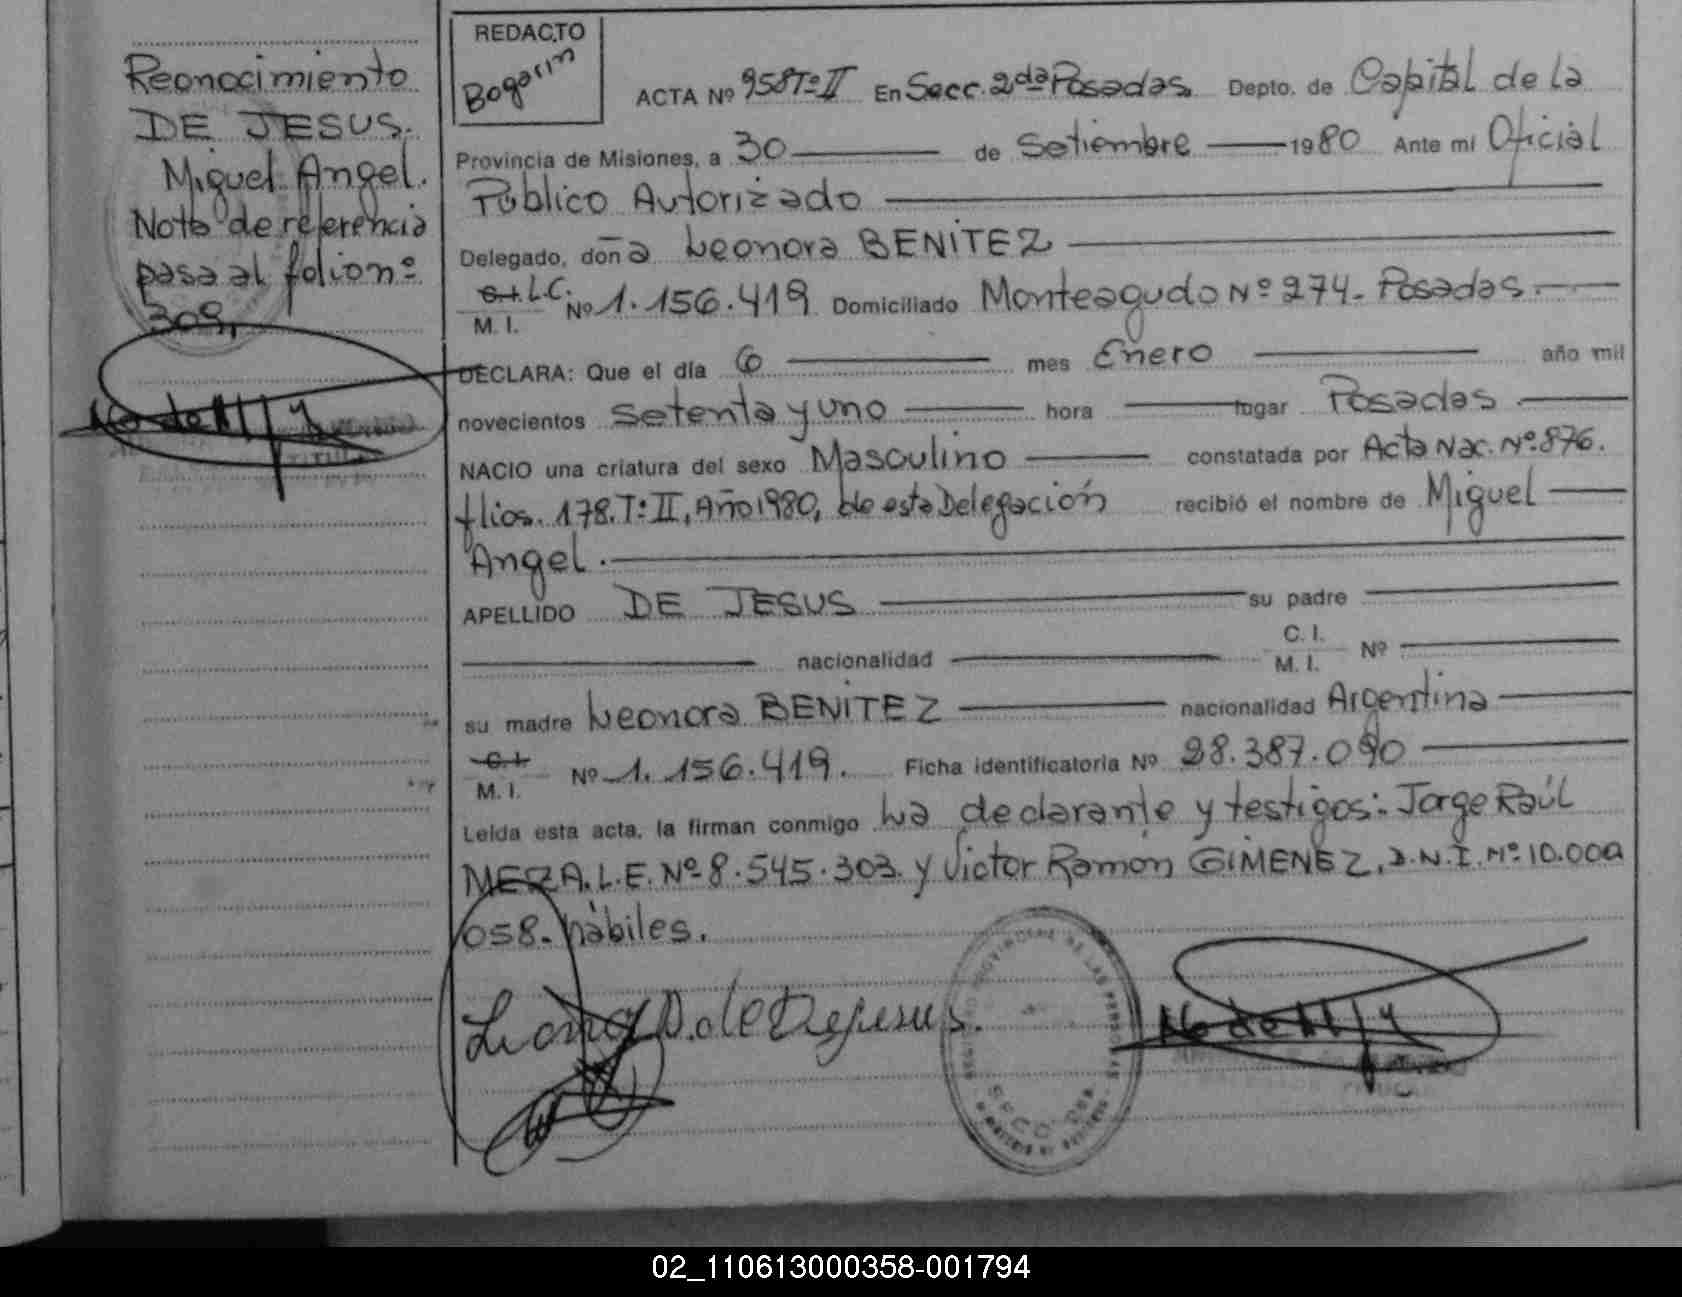 Reonocimiento
DE JESUS.
Miguel Angel.
Nota de referencia
pasa al folio nº
309,
REDACTO
Bogarin
ACTA Nº 958 Tº II En Secc. 2da Posadas. Depto. de Capital de la
Provincia de Misiones, a 30 de Setiembre 1980 Ante mi Oficial
Público Autorizado
Delegado, doña Leonora BENITEZ
C.I. L.C. Nº 1.156.419 Domiciliado Monteagudo Nº 274.- Posadas.
M. I.
DECLARA: Que el día 6 mes Enero año mil
novecientos setenta y uno hora lugar Posadas
NACIO una criatura del sexo Masculino constatada por Acta Nac. Nº 876.
flios. 178. T: II, Año 1980, de esta Delegación recibió el nombre de Miguel
Angel.
APELLIDO DE JESUS su padre
nacionalidad C. I. Nº
M. I.
su madre Leonora BENITEZ nacionalidad Argentina
C.I. Nº 1.156.419. Ficha identificatoria Nº 28.387.090
M. I.
Leida esta acta, la firman conmigo La declarante y testigos: Jorge Raúl
MEZA. L.E. Nº 8.545.303. y Victor Ramón GIMENEZ, D.N.I. Nº 10.000
058. hábiles.
D. de Dejesus.
REGISTRO PROVINCIAL DE LAS PERSONAS
02_110613000358-001794